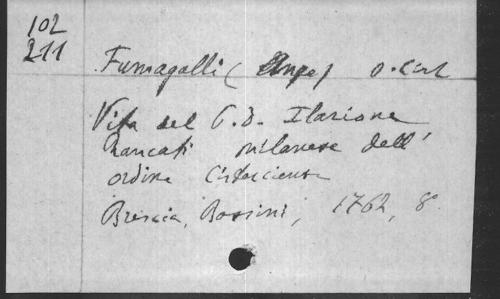 102
211
Fumagalli (Ange) O. Cist
Vita del P. D. Ilarione
Rancati milanese dell'
ordine Cisterciense
Brescia, Bossini, 1762, 8°